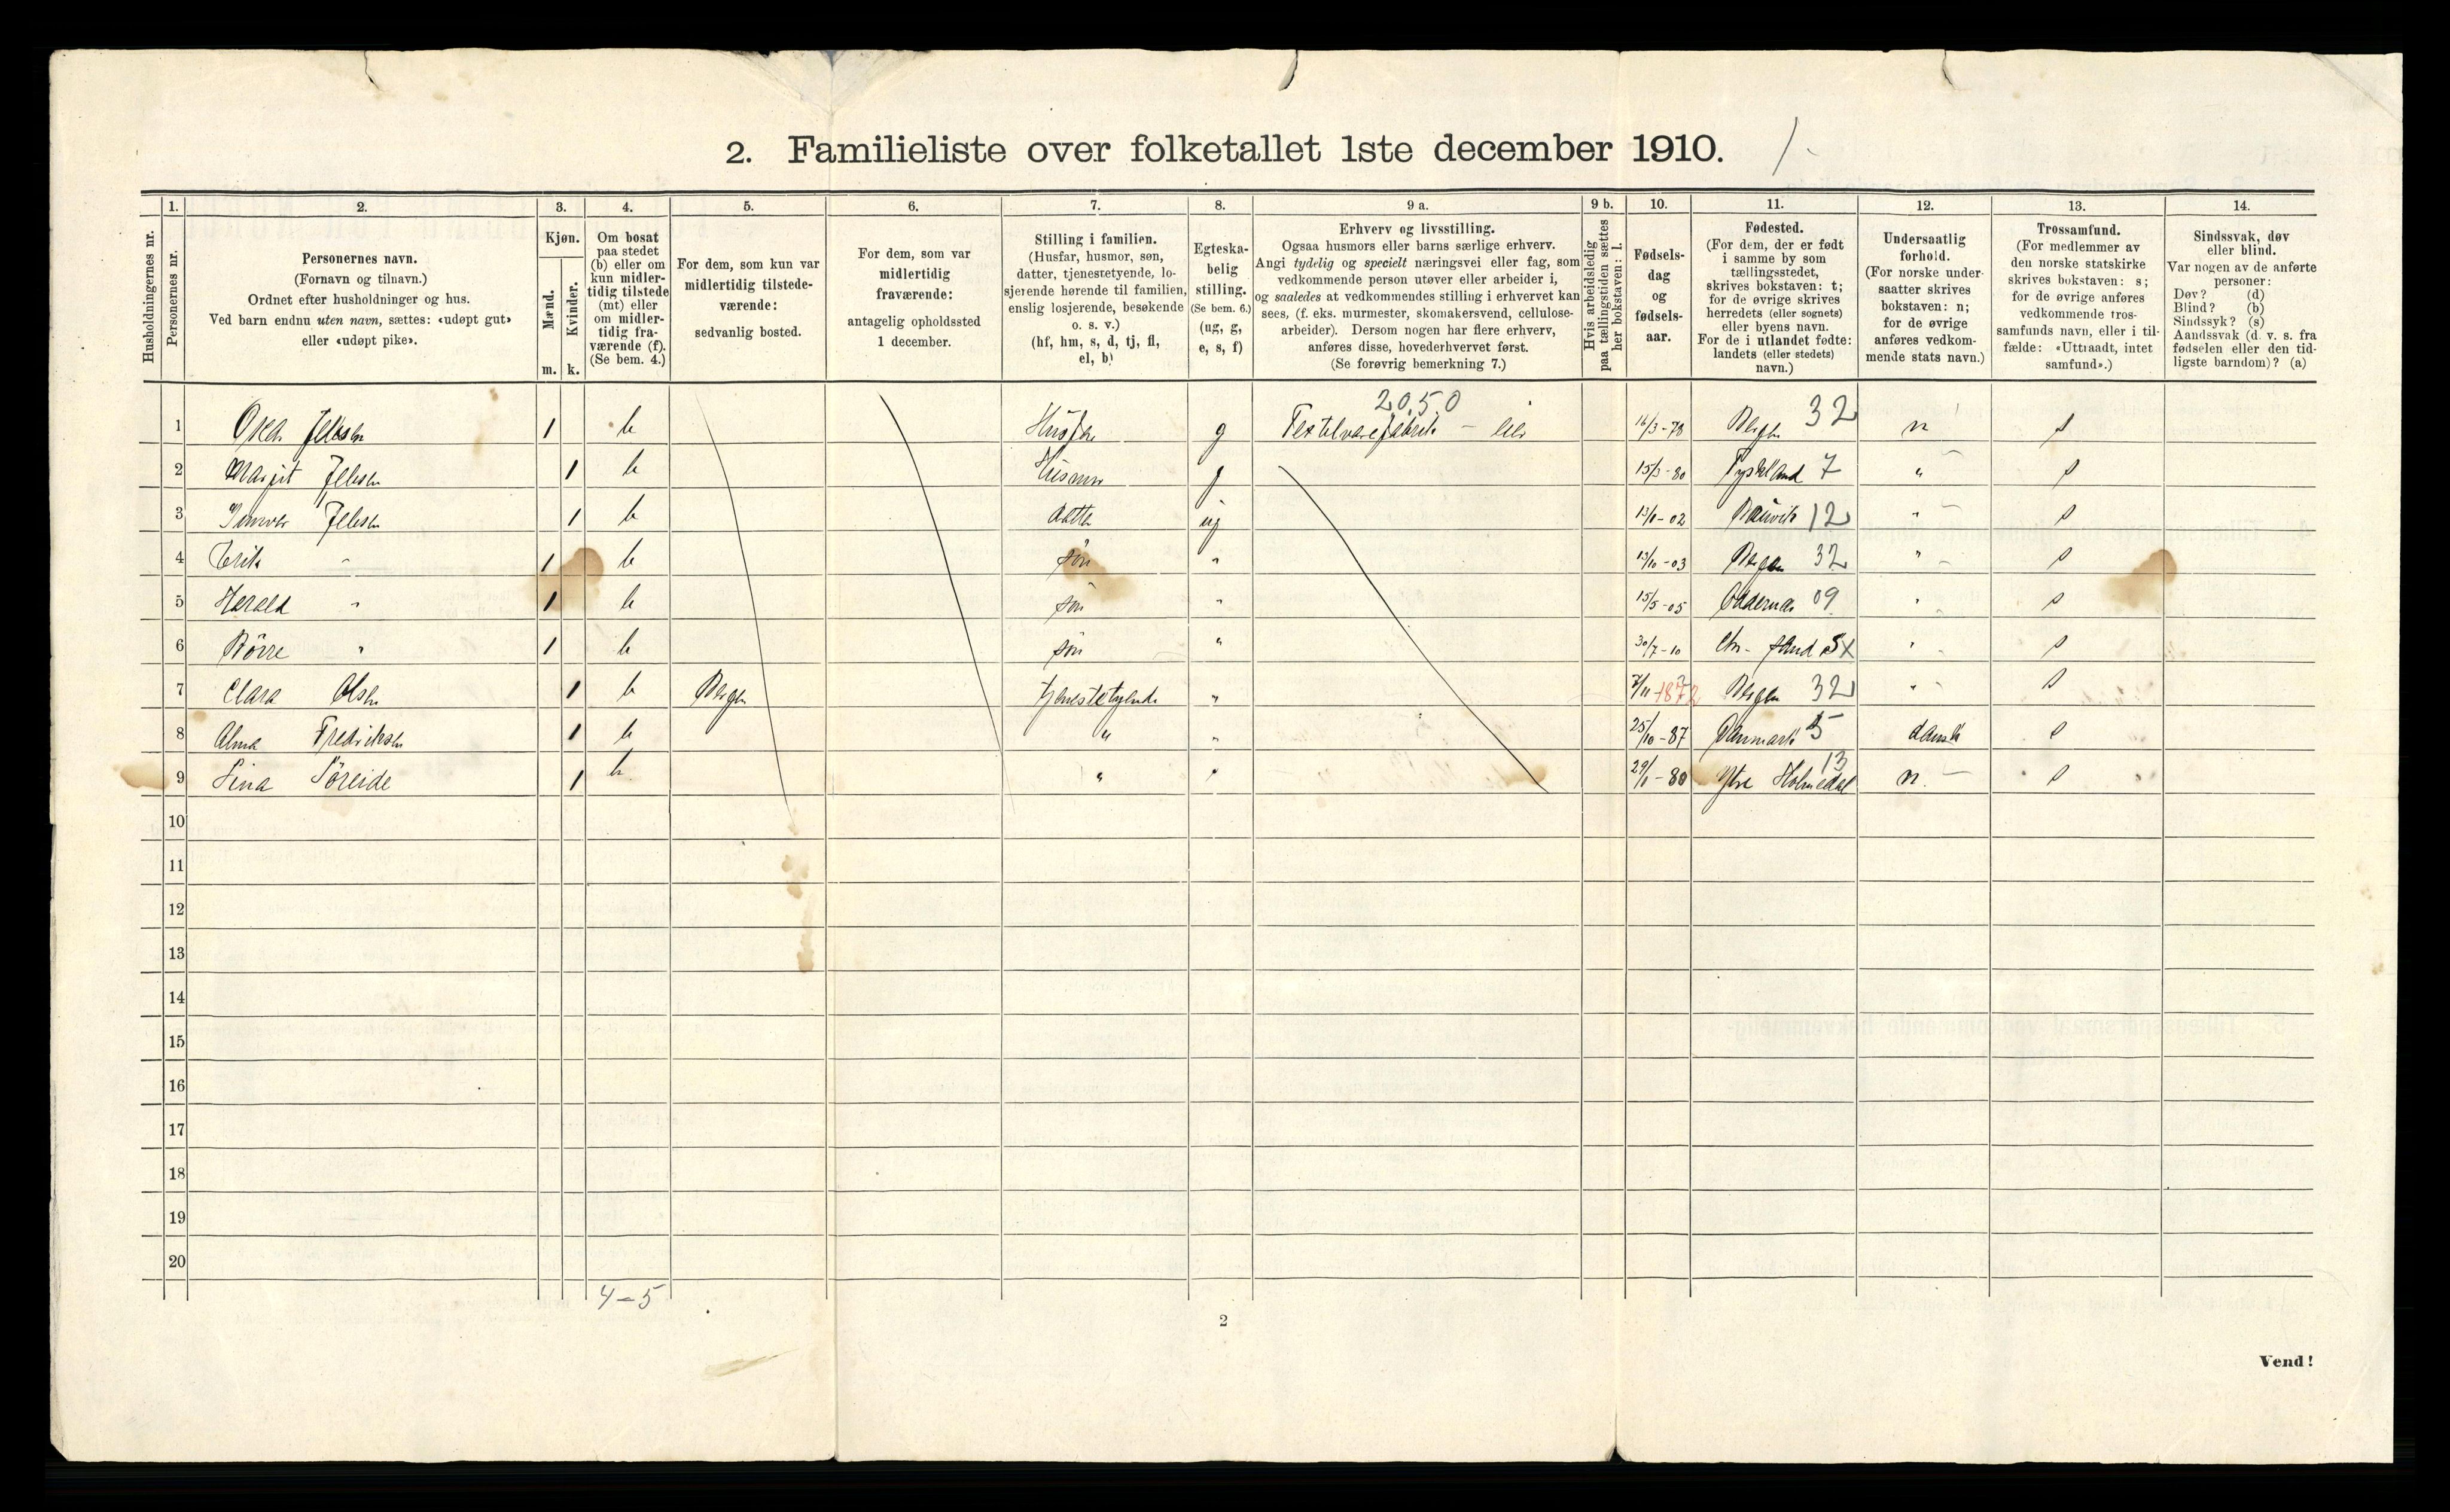 2. Familieliste over folketallet 1ste december 1910.
Husholdningernes nr.
1.
Personernes nr.
2.
Personernes navn.
(Fornavn og tilnavn.)
Ordnet efter husholdninger og hus.
Ved barn endnu uten navn, sættes: «udøpt gut»
eller «udøpt pike».
3.
Kjøn.
Mænd.
Kvinder.
m. k.
4.
Om bosat
paa stedet
(b) eller om
kun midler-
tidig tilstede
(mt) eller
om midler-
tidig fra-
værende (f).
(Se bem. 4.)
5.
For dem, som kun var
midlertidig tilstede-
værende:
sedvanlig bosted.
6.
For dem, som var
midlertidig
fraværende:
antagelig opholdssted
1 december.
7.
Stilling i familien.
(Husfar, husmor, søn,
datter, tjenestetyende, lo-
sjerende hørende til familien,
enslig losjerende, besøkende
o. s. v.)
(hf, hm, s, d, tj, fl,
el, b)
8.
Egteska-
belig
stilling.
(Se bem. 6.)
(ug, g,
e, s, f)
9 a.
Erhverv og livsstilling.
Ogsaa husmors eller barns særlige erhverv.
Angi tydelig og specielt næringsvei eller fag, som
vedkommende person utøver eller arbeider i,
og saaledes at vedkommendes stilling i erhvervet kan
sees, (f. eks. murmester, skomakersvend, cellulose-
arbeider). Dersom nogen har flere erhverv,
anføres disse, hovederhvervet først.
(Se forøvrig bemerkning 7.)
9 b.
Hvis arbeidsledig
paa tællingstiden sættes
her bokstaven: l.
10.
Fødsels-
dag
og
fødsels-
aar.
11.
Fødested.
(For dem, der er født
i samme by som
tællingsstedet,
skrives bokstaven: t;
for de øvrige skrives
herredets (eller sognets)
eller byens navn.
For de i utlandet fødte:
landets (eller stedets)
navn.)
12.
Undersaatlig
forhold.
(For norske under-
saatter skrives
bokstaven: n;
for de øvrige
anføres vedkom-
mende stats navn.)
13.
Trossamfund.
(For medlemmer av
den norske statskirke
skrives bokstaven: s;
for de øvrige anføres
vedkommende tros-
samfunds navn, eller i til-
fælde: «Uttraadt, intet
samfund».)
14.
Sindssvak, døv
eller blind.
Var nogen av de anførte
personer:
Døv? (d)
Blind? (b)
Sindssyk? (s)
Aandssvak (d. v. s. fra
fødselen eller den tid-
ligste barndom)? (a)
20.50
1 Jebsen 1 b Husfar g Textilvarefabrik - eier 16/3-78 Bergen 32 n s
2 Margit Jebsen 1 b Husmor g 15/3-80 Tyskland 7 " s
3 Jebsen 1 b datter ug 02 12 " s
4 Erik " 1 b søn " 13/10-03 Bergen 32 " s
5 Harald " 1 b søn " 15/5-05 09 " s
6 Börre " 1 b søn " 30/7-10 Chr. sand " s
7 Clara Olsen 1 b Bergen tjenestetyende " 7/11 1872 Bergen 32 " s
8 Alma Fredriksen 1 b " " 25/10-87 Danmark 5 dansk s
9 Lina Söreide 1 b " " 29/1-80 Ytre Holmedal 13 n. s
10
11
12
13
14
15
16
17
18
19
20
4-5
2
Vend!